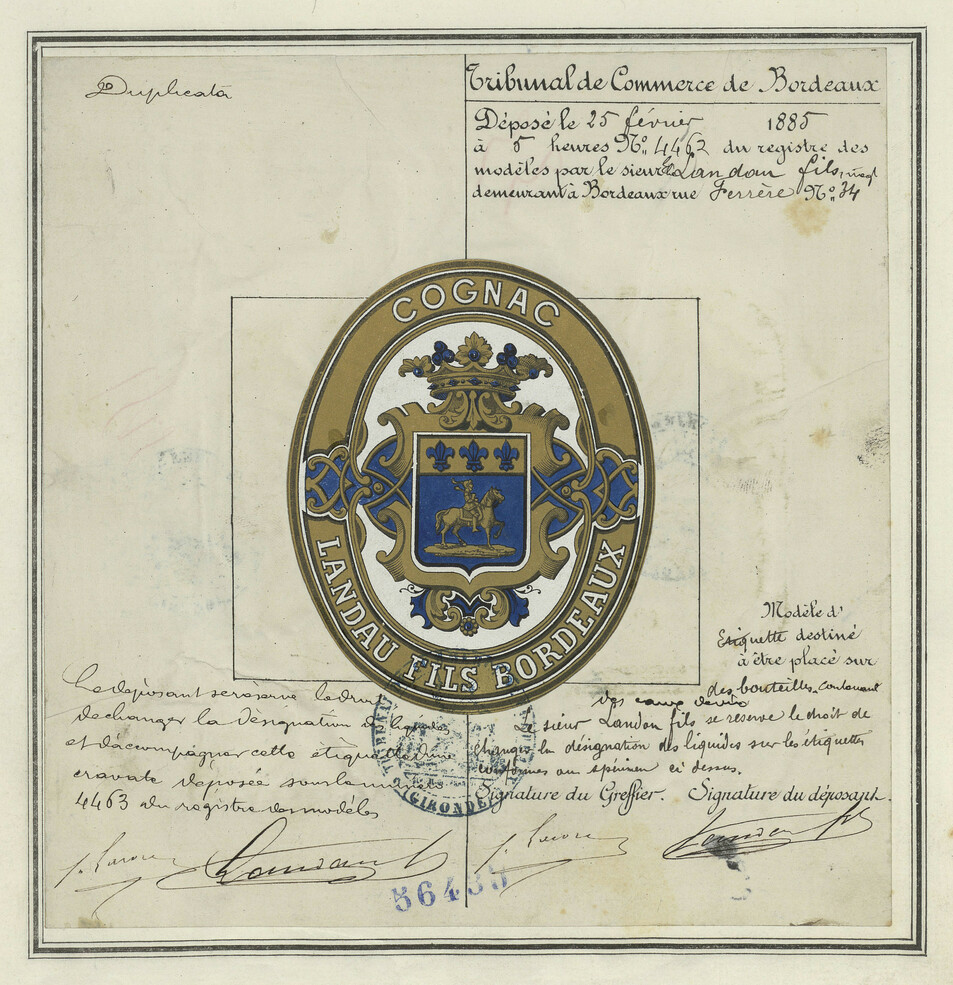 Duplicata
Tribunal de Commerce de Bordeaux
Déposé le 25 février 1885
à 5 heures No. 4462 du registre des
modèles par le sieur Landau fils, negt
demeurant à Bordeaux rue Ferrère No. 34
COGNAC
LANDAU FILS BORDEAUX
Modèle d'
Etiquette destiné
à être placé sur
des bouteilles contenant
des eaux de vie
Le déposant se réserve le droit
de changer la désignation du liquide
et d'accompagner cette étiquette d'une
cravate déposée sous le numéro
4463 du registre des modèles
Le sieur Landau fils se réserve le droit de
changer la désignation des liquides sur les étiquettes
conformes au spécimen ci dessus.
Signature du Greffier. Signature du déposant.
Landau fils
Landau fils
TRIBUNAL
(GIRONDE)
56435